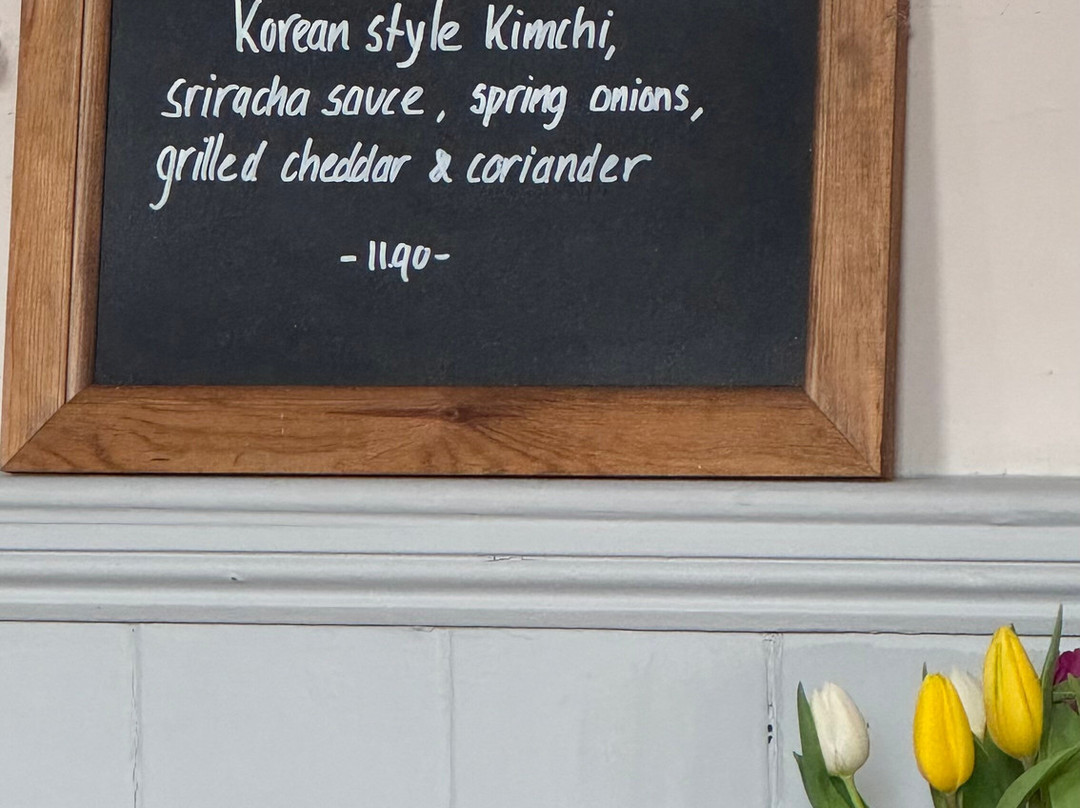 Korean style Kimchi,
sriracha sauce, spring onions,
grilled cheddar & coriander
-11.90-